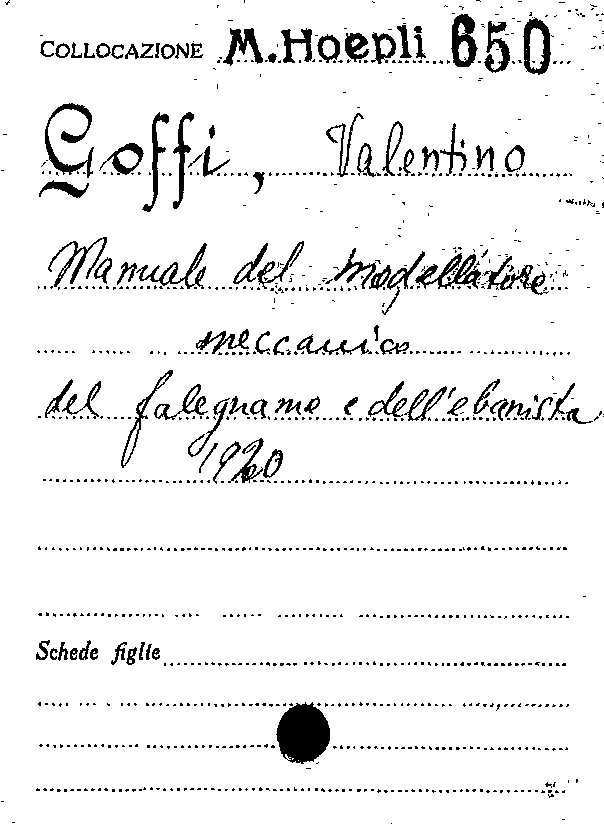 COLLOCAZIONE M. Hoepli 650
Goffi, Valentino
Manuale del modellatore
meccanico
del falegname e dell'ebanista
1920
Schede figlie